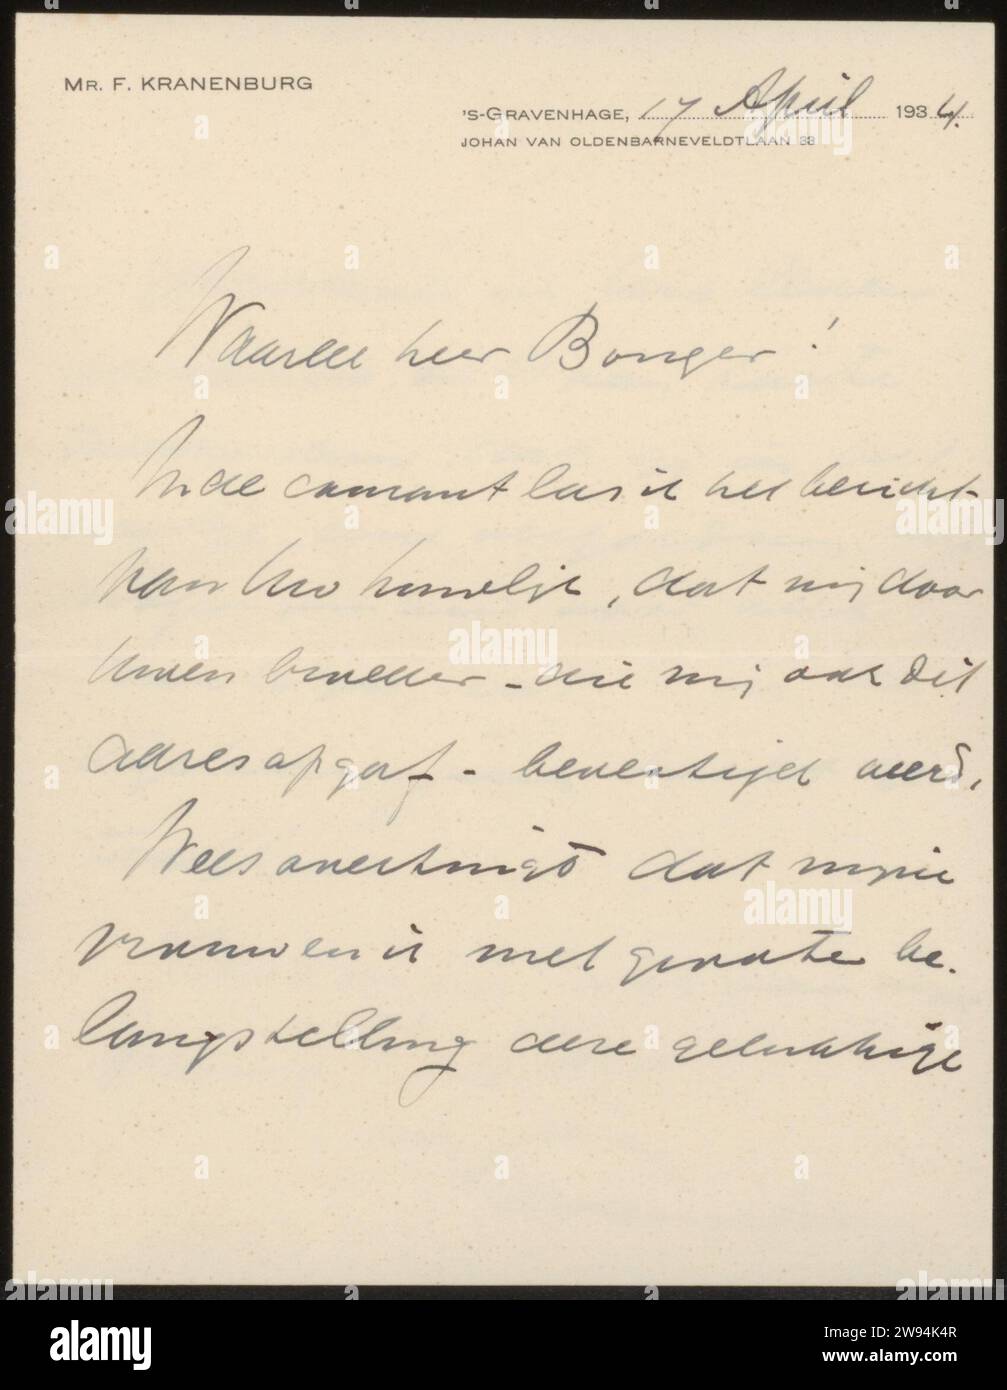 MR. F. KRANENBURG
'S-GRAVENHAGE, 17 April 1934.
JOHAN VAN OLDENBARNEVELDTLAAN 33
Waarde heer Bonger!
In de courant las ik het bericht
van Uw huwelijk, dat mij door
Uwen broeder - die mij ook dit
adres opgaf - bevestigd werd.
Wees overtuigd dat mijne
vrouw en ik met groote be-
langstelling deze gelukkige
alamy
Image ID: 2W94K4R
www.alamy.com